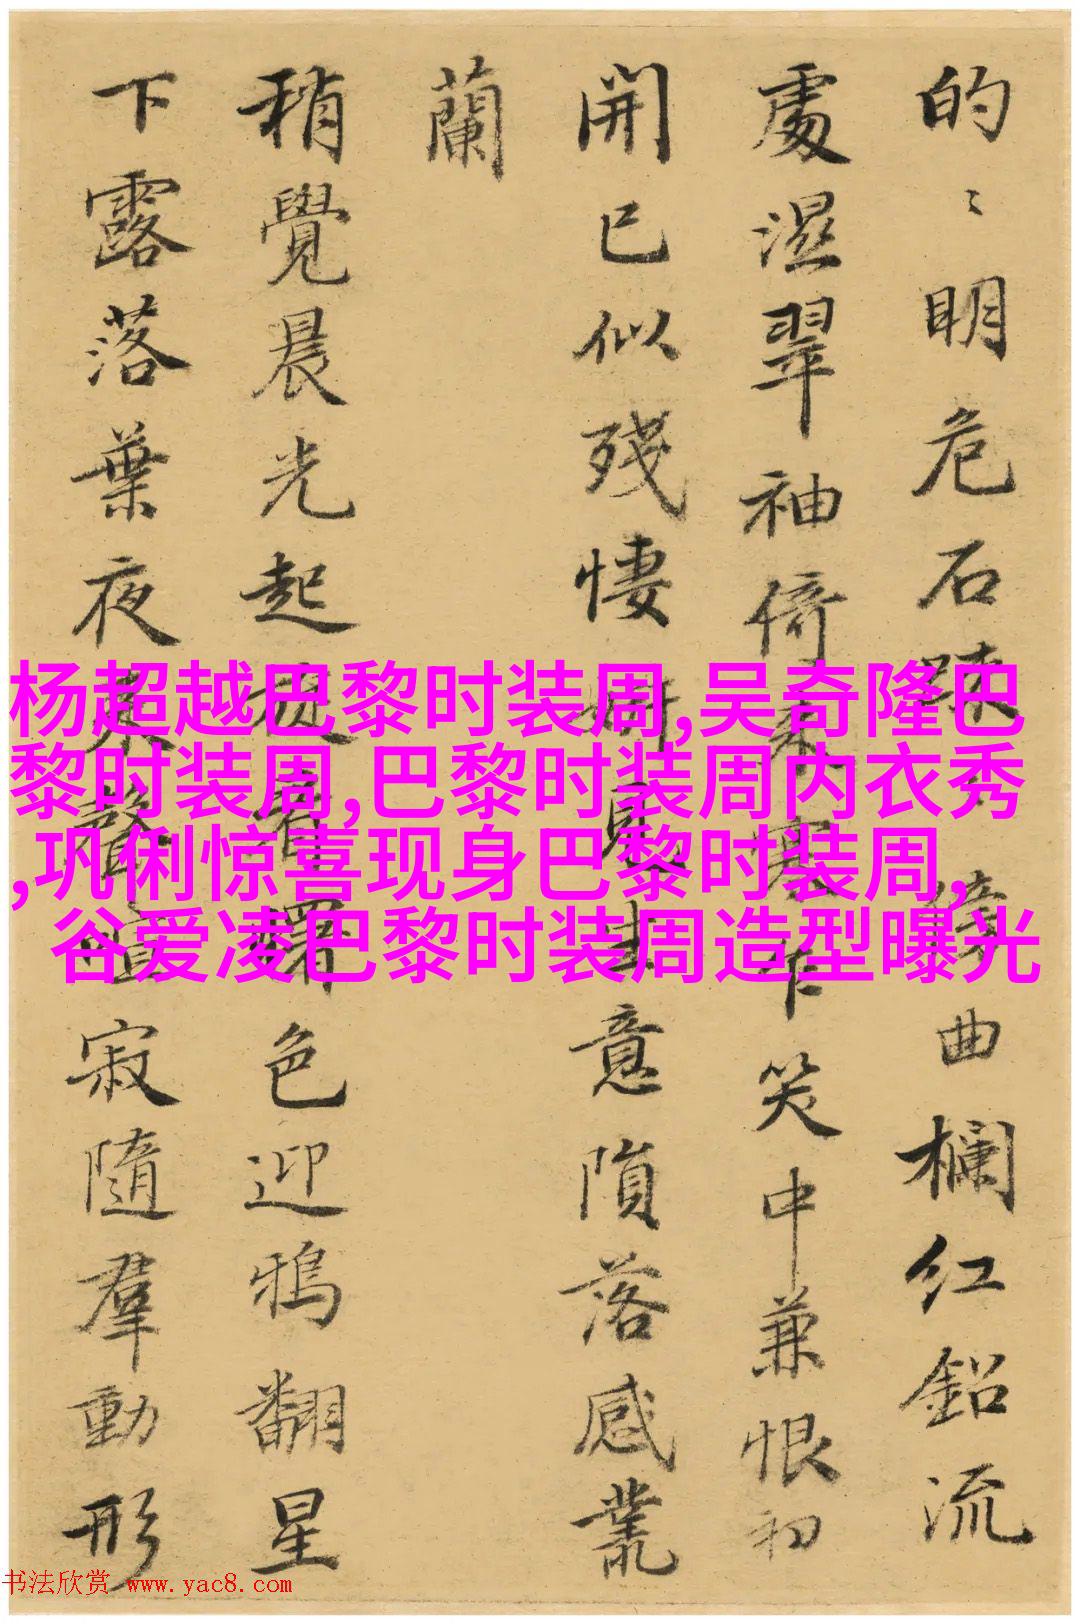 的〻明危石疎〻倚曲欄红鉛流
處濕翠袖倚来寒乍笑中兼恨初
開已似残悽妍見生意隕落感叢
蘭
稍覺晨光起遠看曙色迎鴉翻星
下露落葉夜来聲喧寂隨羣動形
杨超越巴黎时装周,吴奇隆巴
黎时装周,巴黎时装周内衣秀
,巩俐惊喜现身巴黎时装周,
谷爱凌巴黎时装周造型曝光
书法欣赏 www.yac8.com